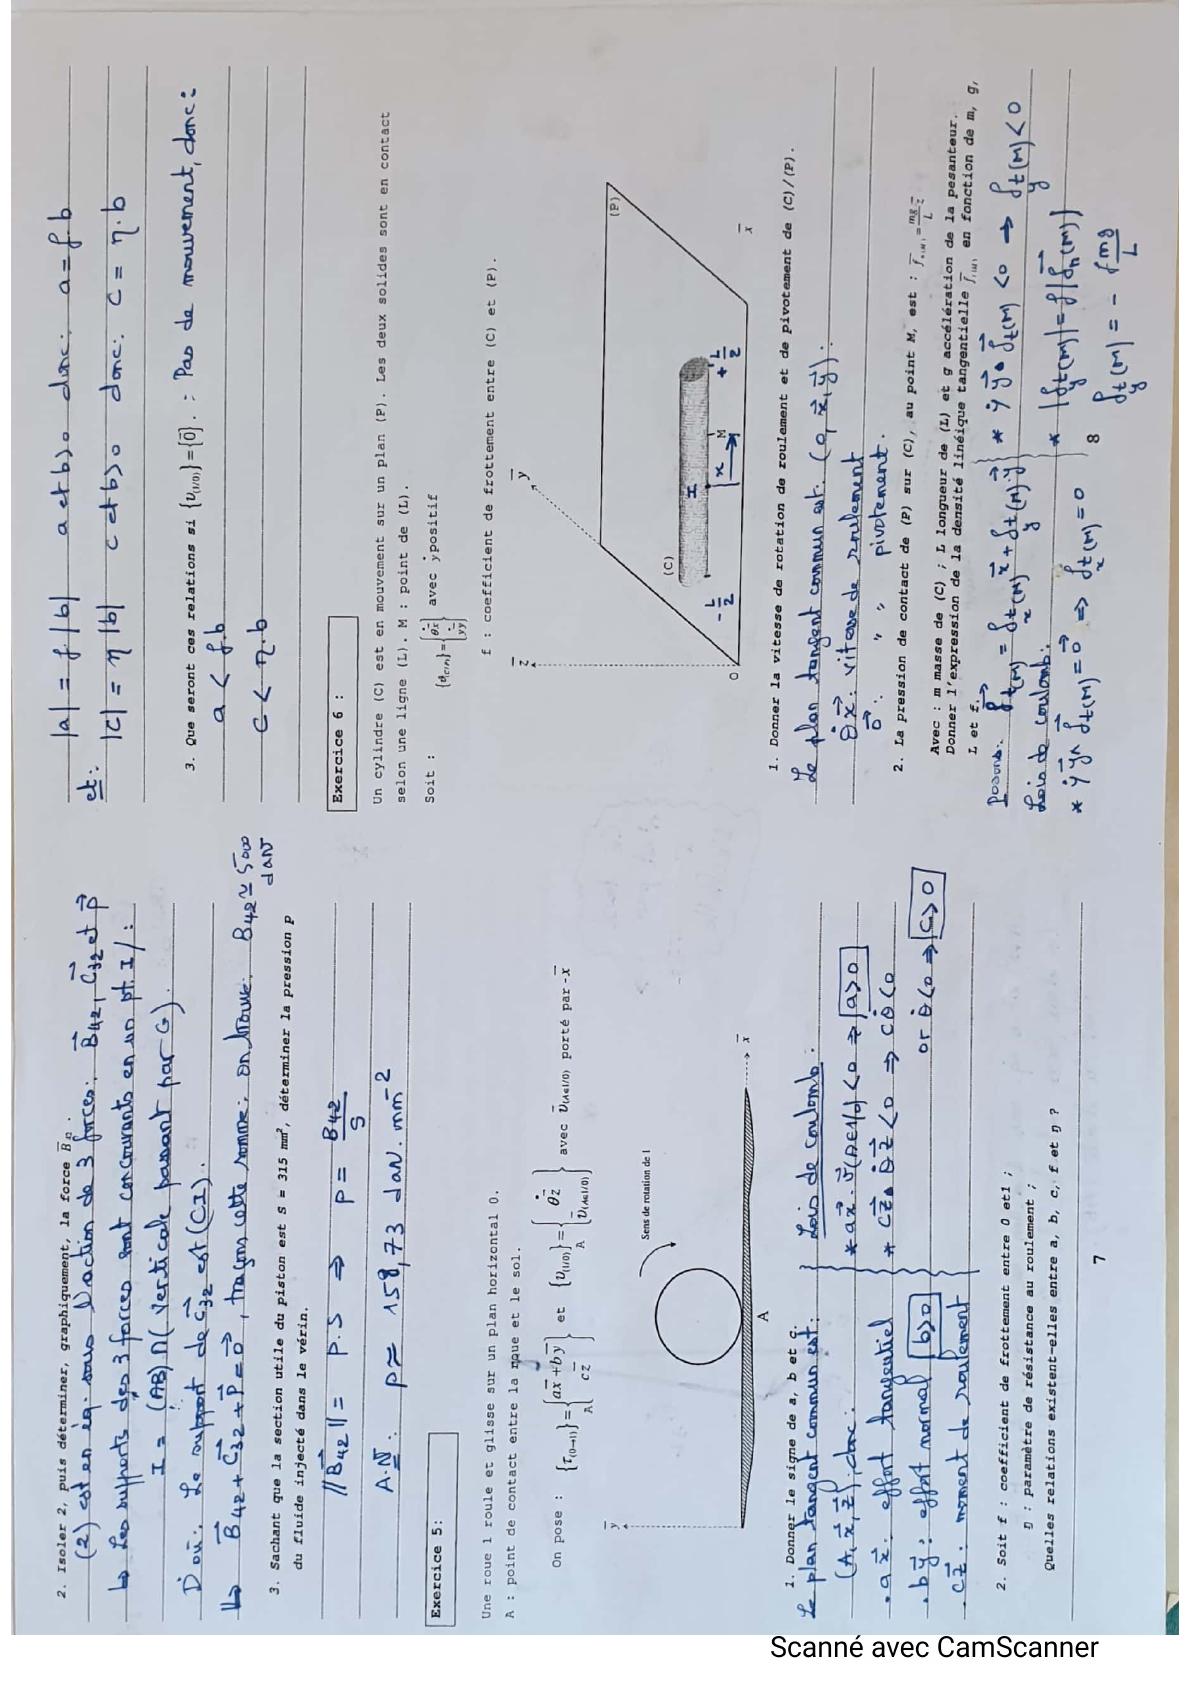 2. Isoler 2, puis déterminer, graphiquement, la force B₄₂.
(2) est en éq. sous l'action de 3 forces: B₄₂, C₃₂ et P
↳ Les supports des 3 forces sont concourants en un pt I /:
I = (AB) ∩ (verticale passant par G).
D'où: Le support de C₃₂ est (CI).
↳ B₄₂ + C₃₂ + P = 0, traçons cette somme: on trouve: B₄₂ ≃ 5000 daN
3. Sachant que la section utile du piston est S = 315 mm², déterminer la pression p
du fluide injecté dans le vérin.
||B₄₂|| = P.S ⇒ P = B₄₂/S
A.N: P ≃ 158,73 daN.mm⁻²
Exercice 5:
Une roue 1 roule et glisse sur un plan horizontal 0.
A : point de contact entre la roue et le sol.
On pose : {τ(0→1)} = A{ax + by / cz} et {υ(1/0)} = A{θ̇z / υ(A∈1/0)} avec υ(A∈1/0) porté par -x
y
Sens de rotation de 1
x
A
1. Donner le signe de a, b et c.
Le plan tangent commun est:
(A, x, z), donc:
. a x : effort tangentiel
. b y : effort normal b>0
. c z : moment de roulement
Lois de Coulomb:
* a x . V(A∈1/0) < 0 ⇒ a>0
* c z . θ̇ z < 0 ⇒ c θ̇ < 0
or θ̇ < 0 ⇒ c>0
2. Soit f : coefficient de frottement entre 0 et1 ;
η : paramètre de résistance au roulement ;
Quelles relations existent-elles entre a, b, c, f et η ?
7
|a| = f |b| a et b>0 donc: a = f.b
et: |c| = η |b| c et b>0 donc: c = η.b
3. Que seront ces relations si {υ(1/0)} = {0}. : Pas de mouvement, donc:
a < f.b
c < η.b
Exercice 6 :
Un cylindre (C) est en mouvement sur un plan (P). Les deux solides sont en contact
selon une ligne (L). M : point de (L).
Soit : {υ(C/P)} = {θ̇x / ẏy} avec ẏ positif
f : coefficient de frottement entre (C) et (P).
z
y
(P)
(C)
I
x
M
-L/2
+L/2
O
x
1. Donner la vitesse de rotation de roulement et de pivotement de (C)/(P).
Le plan tangent commun est: (O, x, y):
θ̇x : vitesse de roulement
0 : " " pivotement.
2. La pression de contact de (P) sur (C), au point M, est : fn(M) = mg/L z
Avec : m masse de (C) ; L longueur de (L) et g accélération de la pesanteur.
Donner l'expression de la densité linéique tangentielle ft(M) en fonction de m, g,
L et f.
Posons: ft(M) = ftx(M) x + fty(M) y
Lois de coulomb:
* ẏ y ∧ ft(M) = 0 ⇒ ftx(M) = 0
* ẏ y . ft(M) < 0 → fty(M) < 0
* |fty(M)| = f |fn(M)|
fty(M) = - f mg/L
8
Scanné avec CamScanner